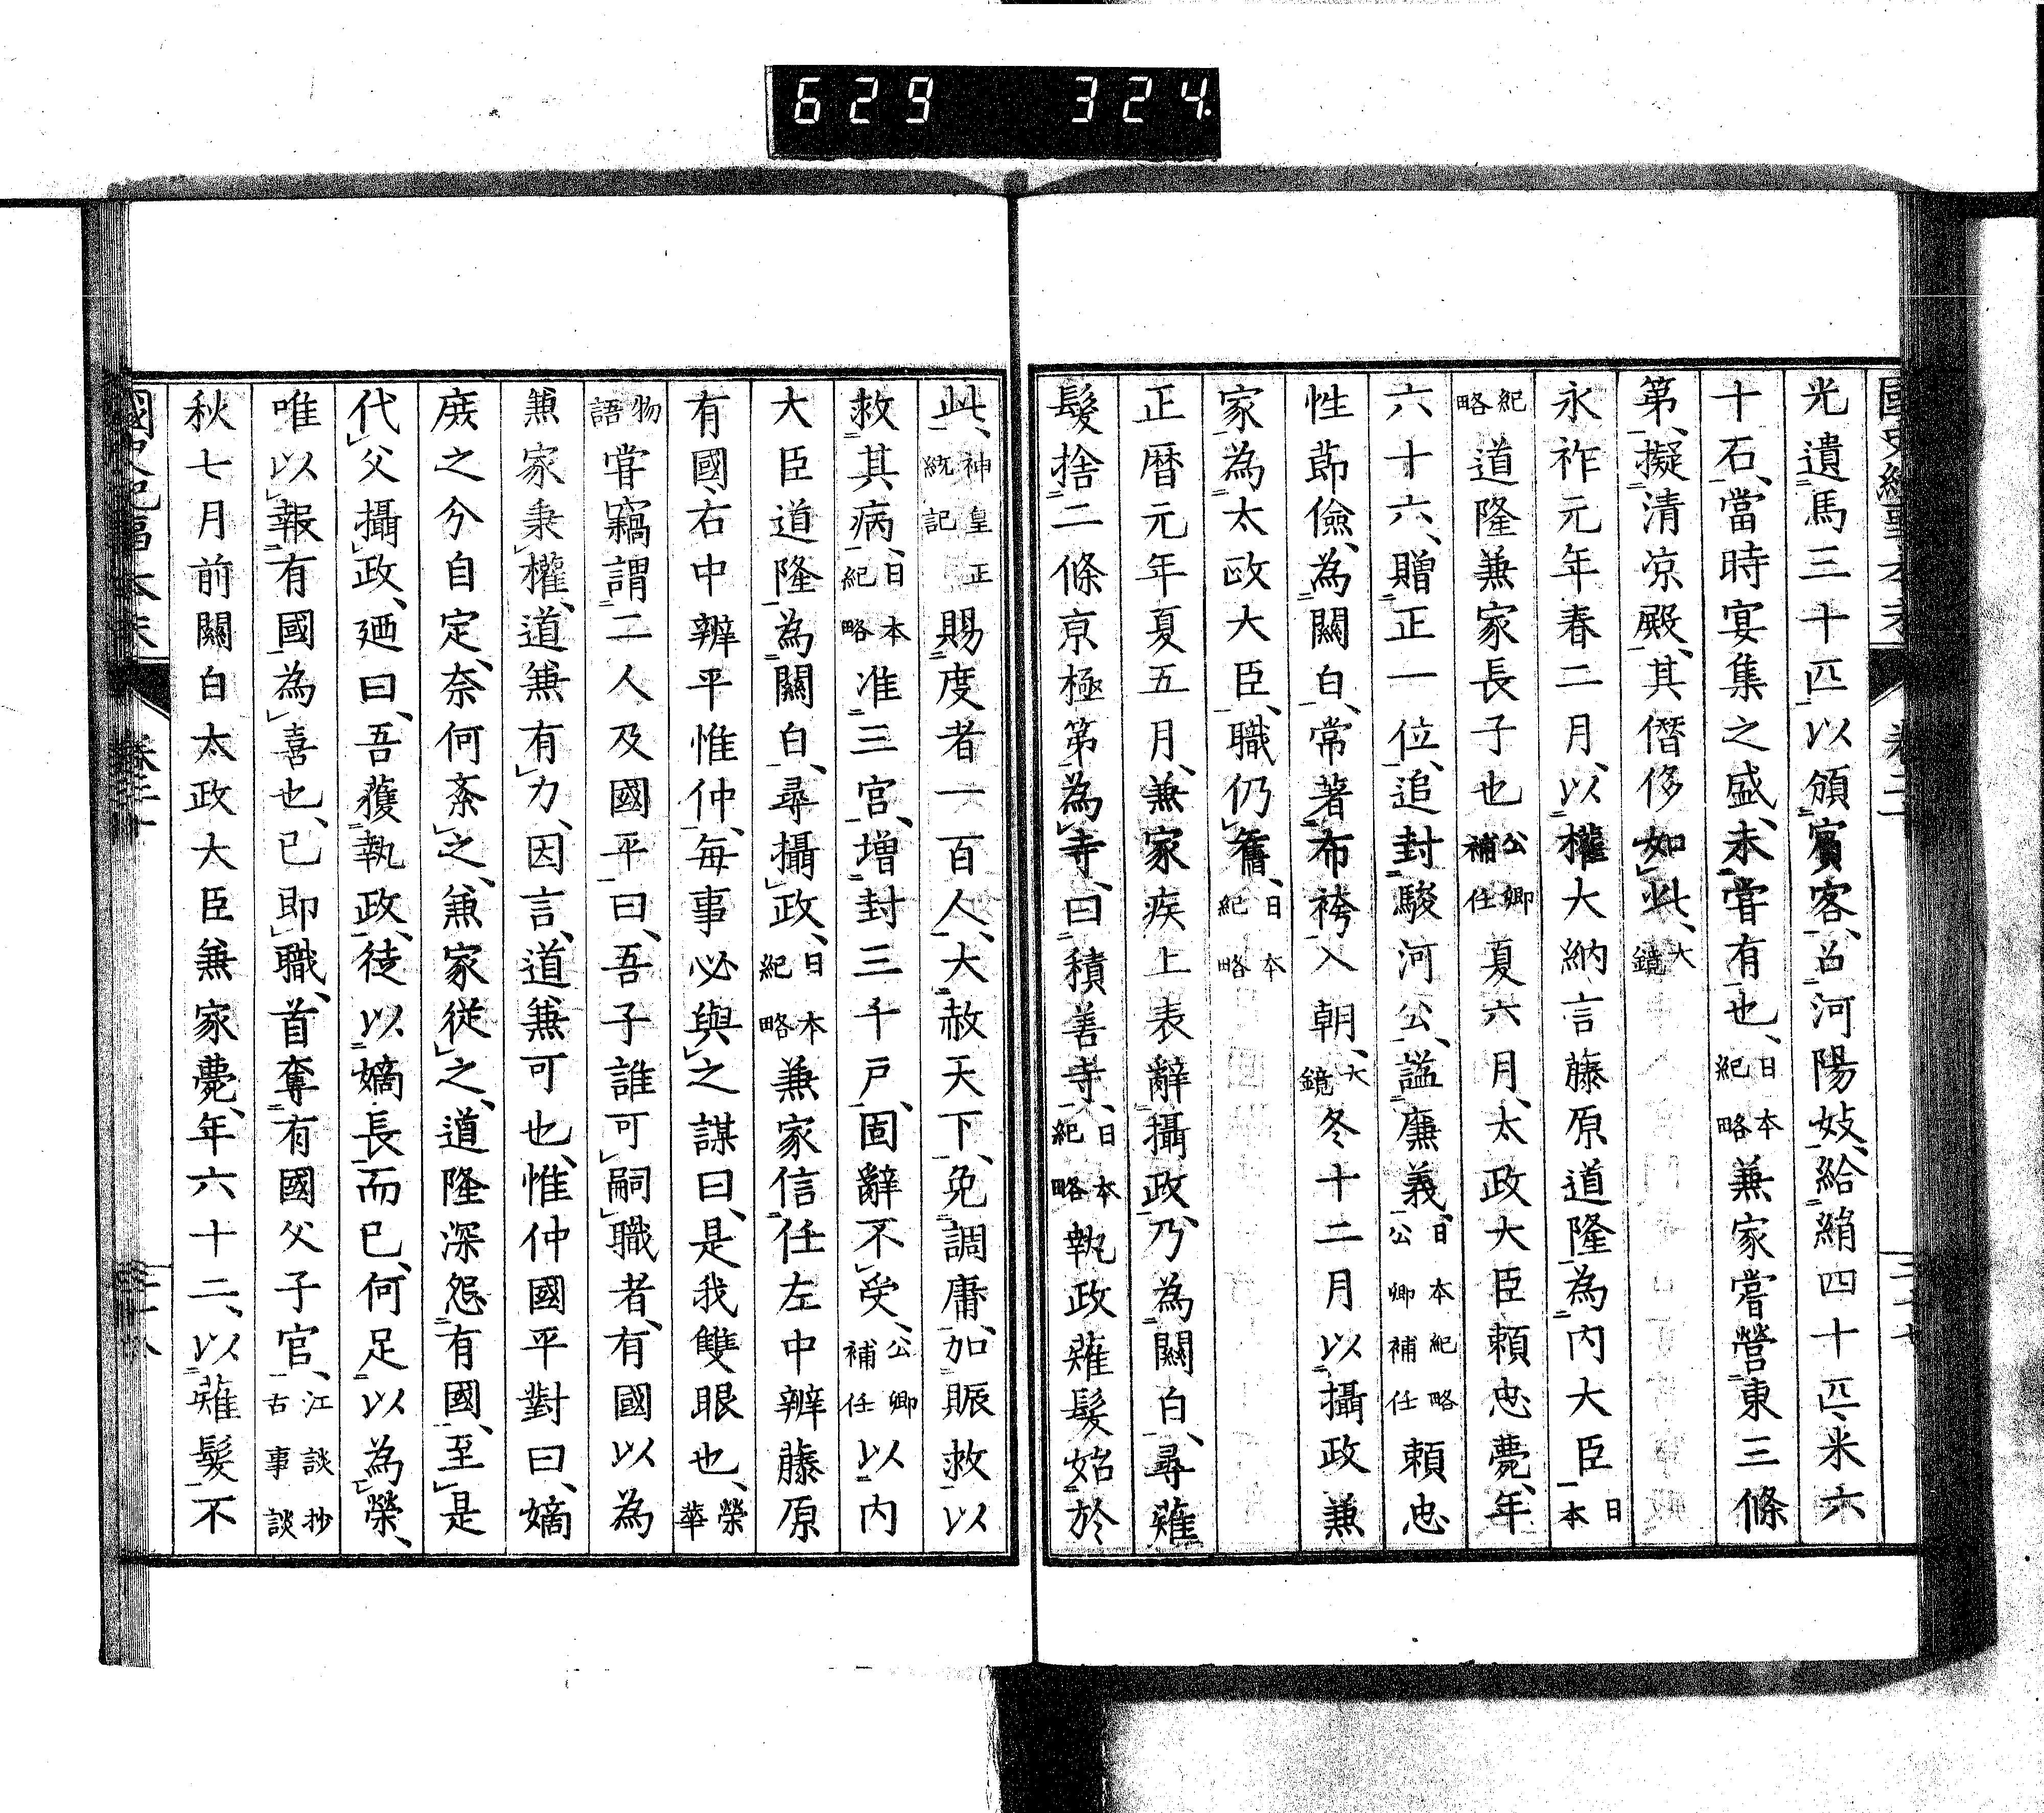 629 324
光遺馬三十匹以頒賓客、召河陽妓、給絹四十匹、米六
十石、當時宴集之盛、未嘗有也、日本紀略兼家嘗營東三條
第、擬清凉殿、其僭侈如此、大鏡
永祚元年春二月、以權大納言藤原道隆為內大臣日本
紀略道隆兼家長子也公卿補任夏六月、太政大臣賴忠薨、年
六十六、贈正一位、追封駿河公、謚廉義、日本紀略公卿補任賴忠
性節儉、為關白、常著布袴入朝、大鏡冬十二月以攝政兼
家為太政大臣、職仍舊、日本紀略
正曆元年夏五月、兼家疾上表辭攝政、乃為關白、尋薙
髮捨二條京極第為寺、曰積善寺、日本紀略執政薙髮始於
此、神皇正統記賜度者一百人、大赦天下、免調庸、加賑救以
救其病、日本紀略准三宮、增封三千戶、固辭不受、公卿補任以內
大臣道隆為關白、尋攝政、日本紀略兼家信任左中辨藤原
有國、右中辨平惟仲、每事必與之謀曰、是我雙眼也、榮華
物語嘗竊謂二人及國平曰、吾子誰可嗣職者、有國以為
兼家秉權、道兼有力、因言、道兼可也、惟仲國平對曰、嫡
庶之分自定、奈何紊之、兼家從之、道隆深怨有國、至是
代父攝政、廼曰、吾獲執政、徒以嫡長而已、何足以為榮、
唯以報有國為喜也、已即職、首奪有國父子官、江談抄古事談
秋七月前關白太政大臣兼家薨、年六十二、以薙髮不